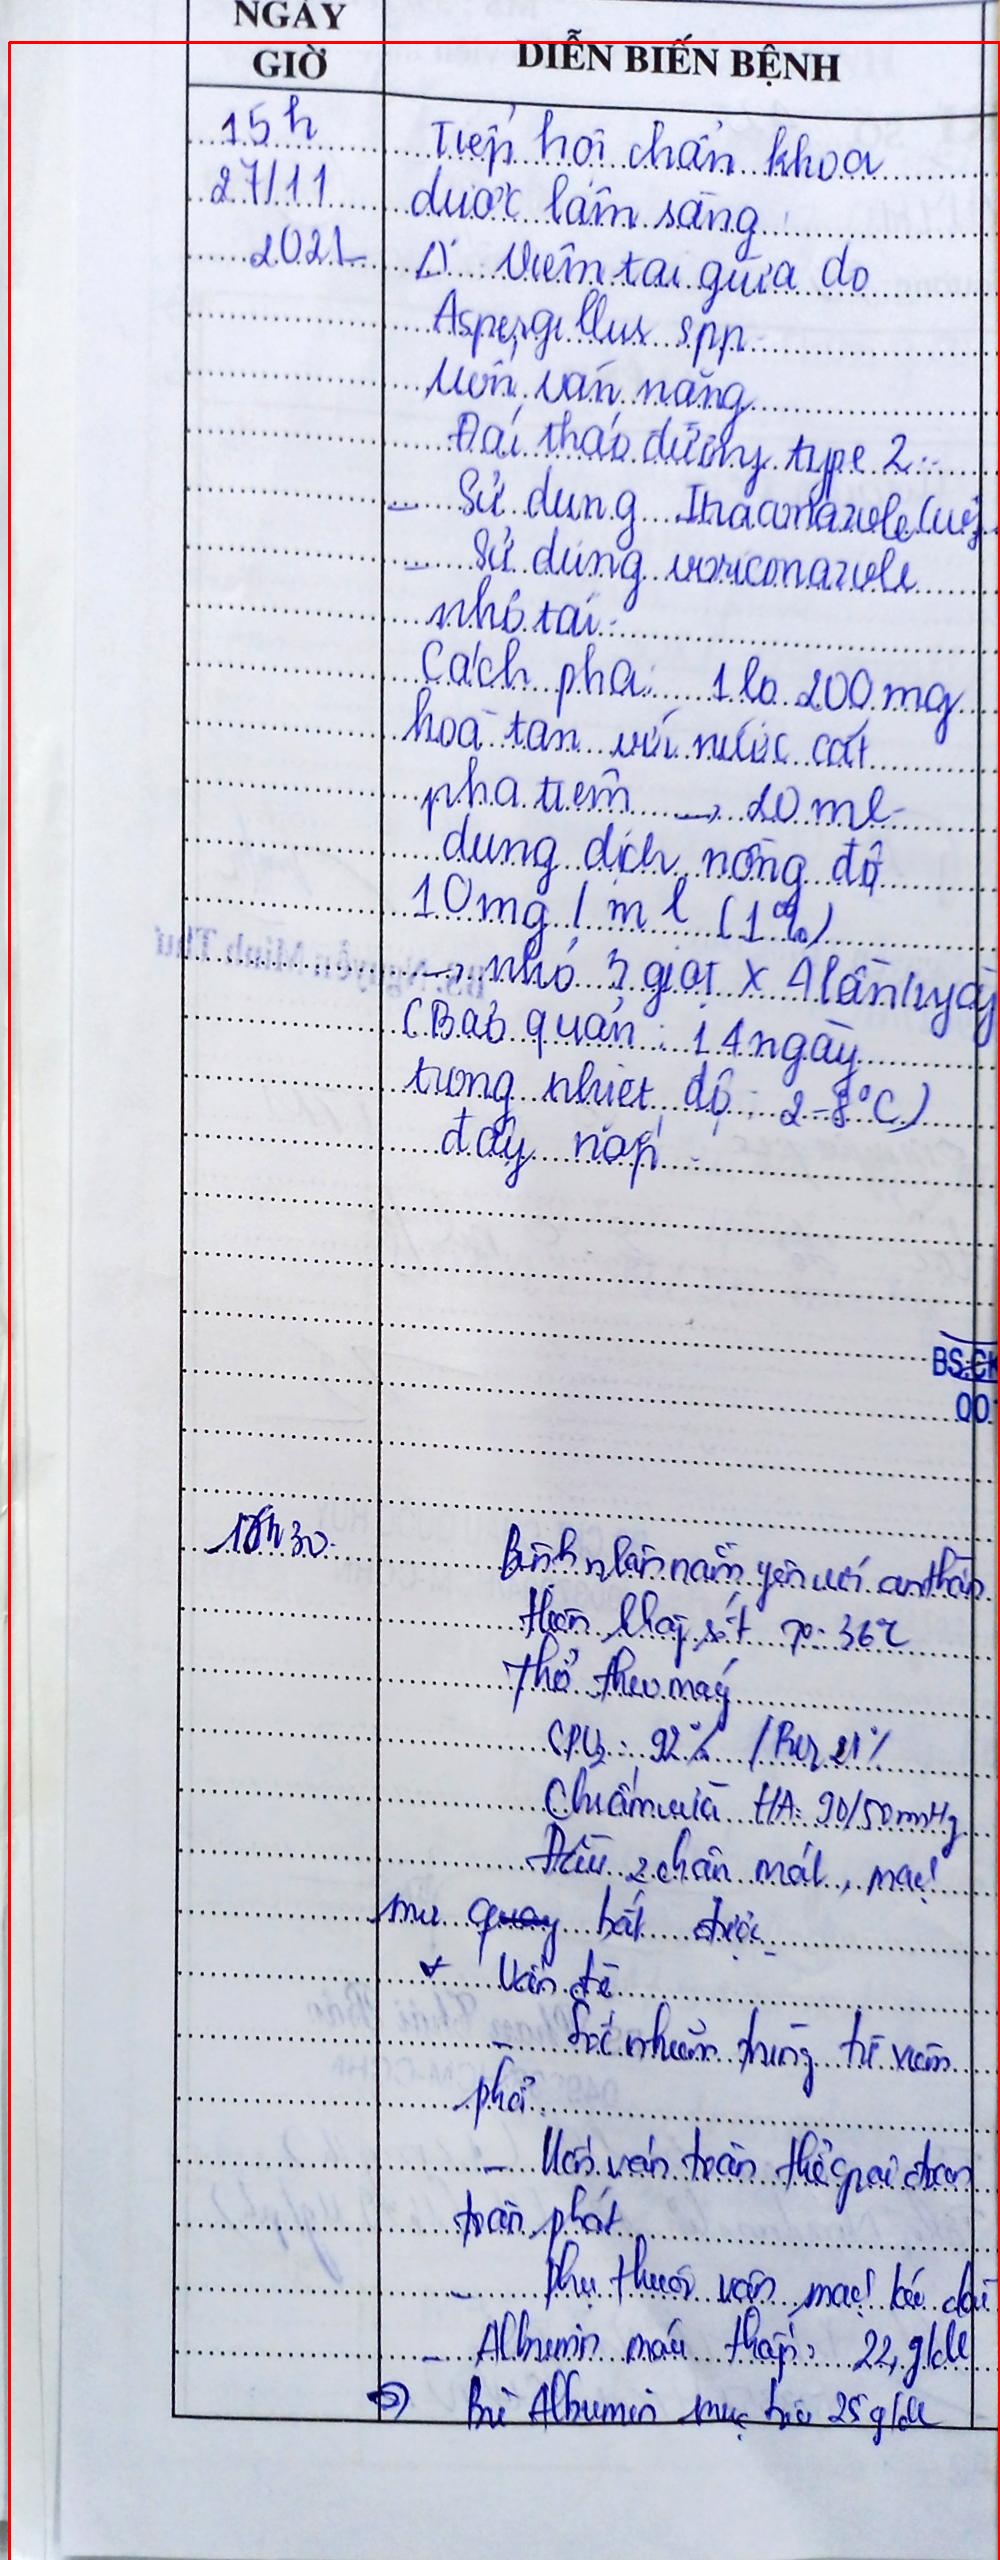 NGÀY
GIỜ
DIỄN BIẾN BỆNH
15h
27/11
2021
Tiếp hội chẩn khoa
dược lâm sàng:
Δ: Viêm tai giữa do
Aspergillus spp
Uốn ván nặng
Đái tháo đường type 2
- Sử dụng Itraconazole (uống)
- Sử dụng voriconazole
nhỏ tai:
Cách pha: 1 lọ 200mg
hoà tan với nước cất
pha tiêm → 20 ml
dung dịch nồng độ
10mg/ml (1%)
→ nhỏ 3 giọt x 4 lần/ngày
(Bảo quản: 14 ngày
trong nhiệt độ: 2-8°C)
đậy nắp
BS.CK
00
30
Bệnh nhân nằm yên với an thần
sốt 36°C
Thở theo máy
92% / 21%
HA: 90/50 mmHg
2 chân mát, mạch
mu bắt được
Vấn đề
- Sốc nhiễm trùng từ viêm
phổi
- Uốn ván toàn thể giai đoạn
toàn phát
- Phụ thuộc vận mạch kéo dài
- Albumin máu thấp: 22, g/dl
Bù Albumin mục tiêu 25 g/dl